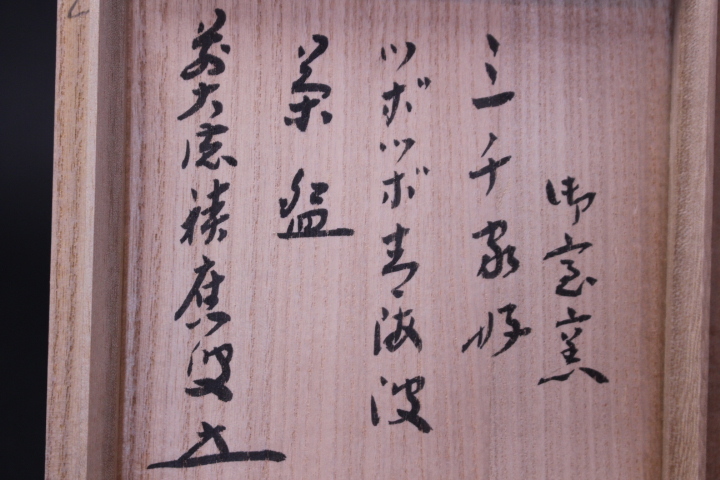 御室窯
三千家好
ツボツボ青海波
茶盌
前大徳積應叟